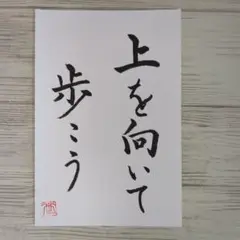 上を向いて
歩こう